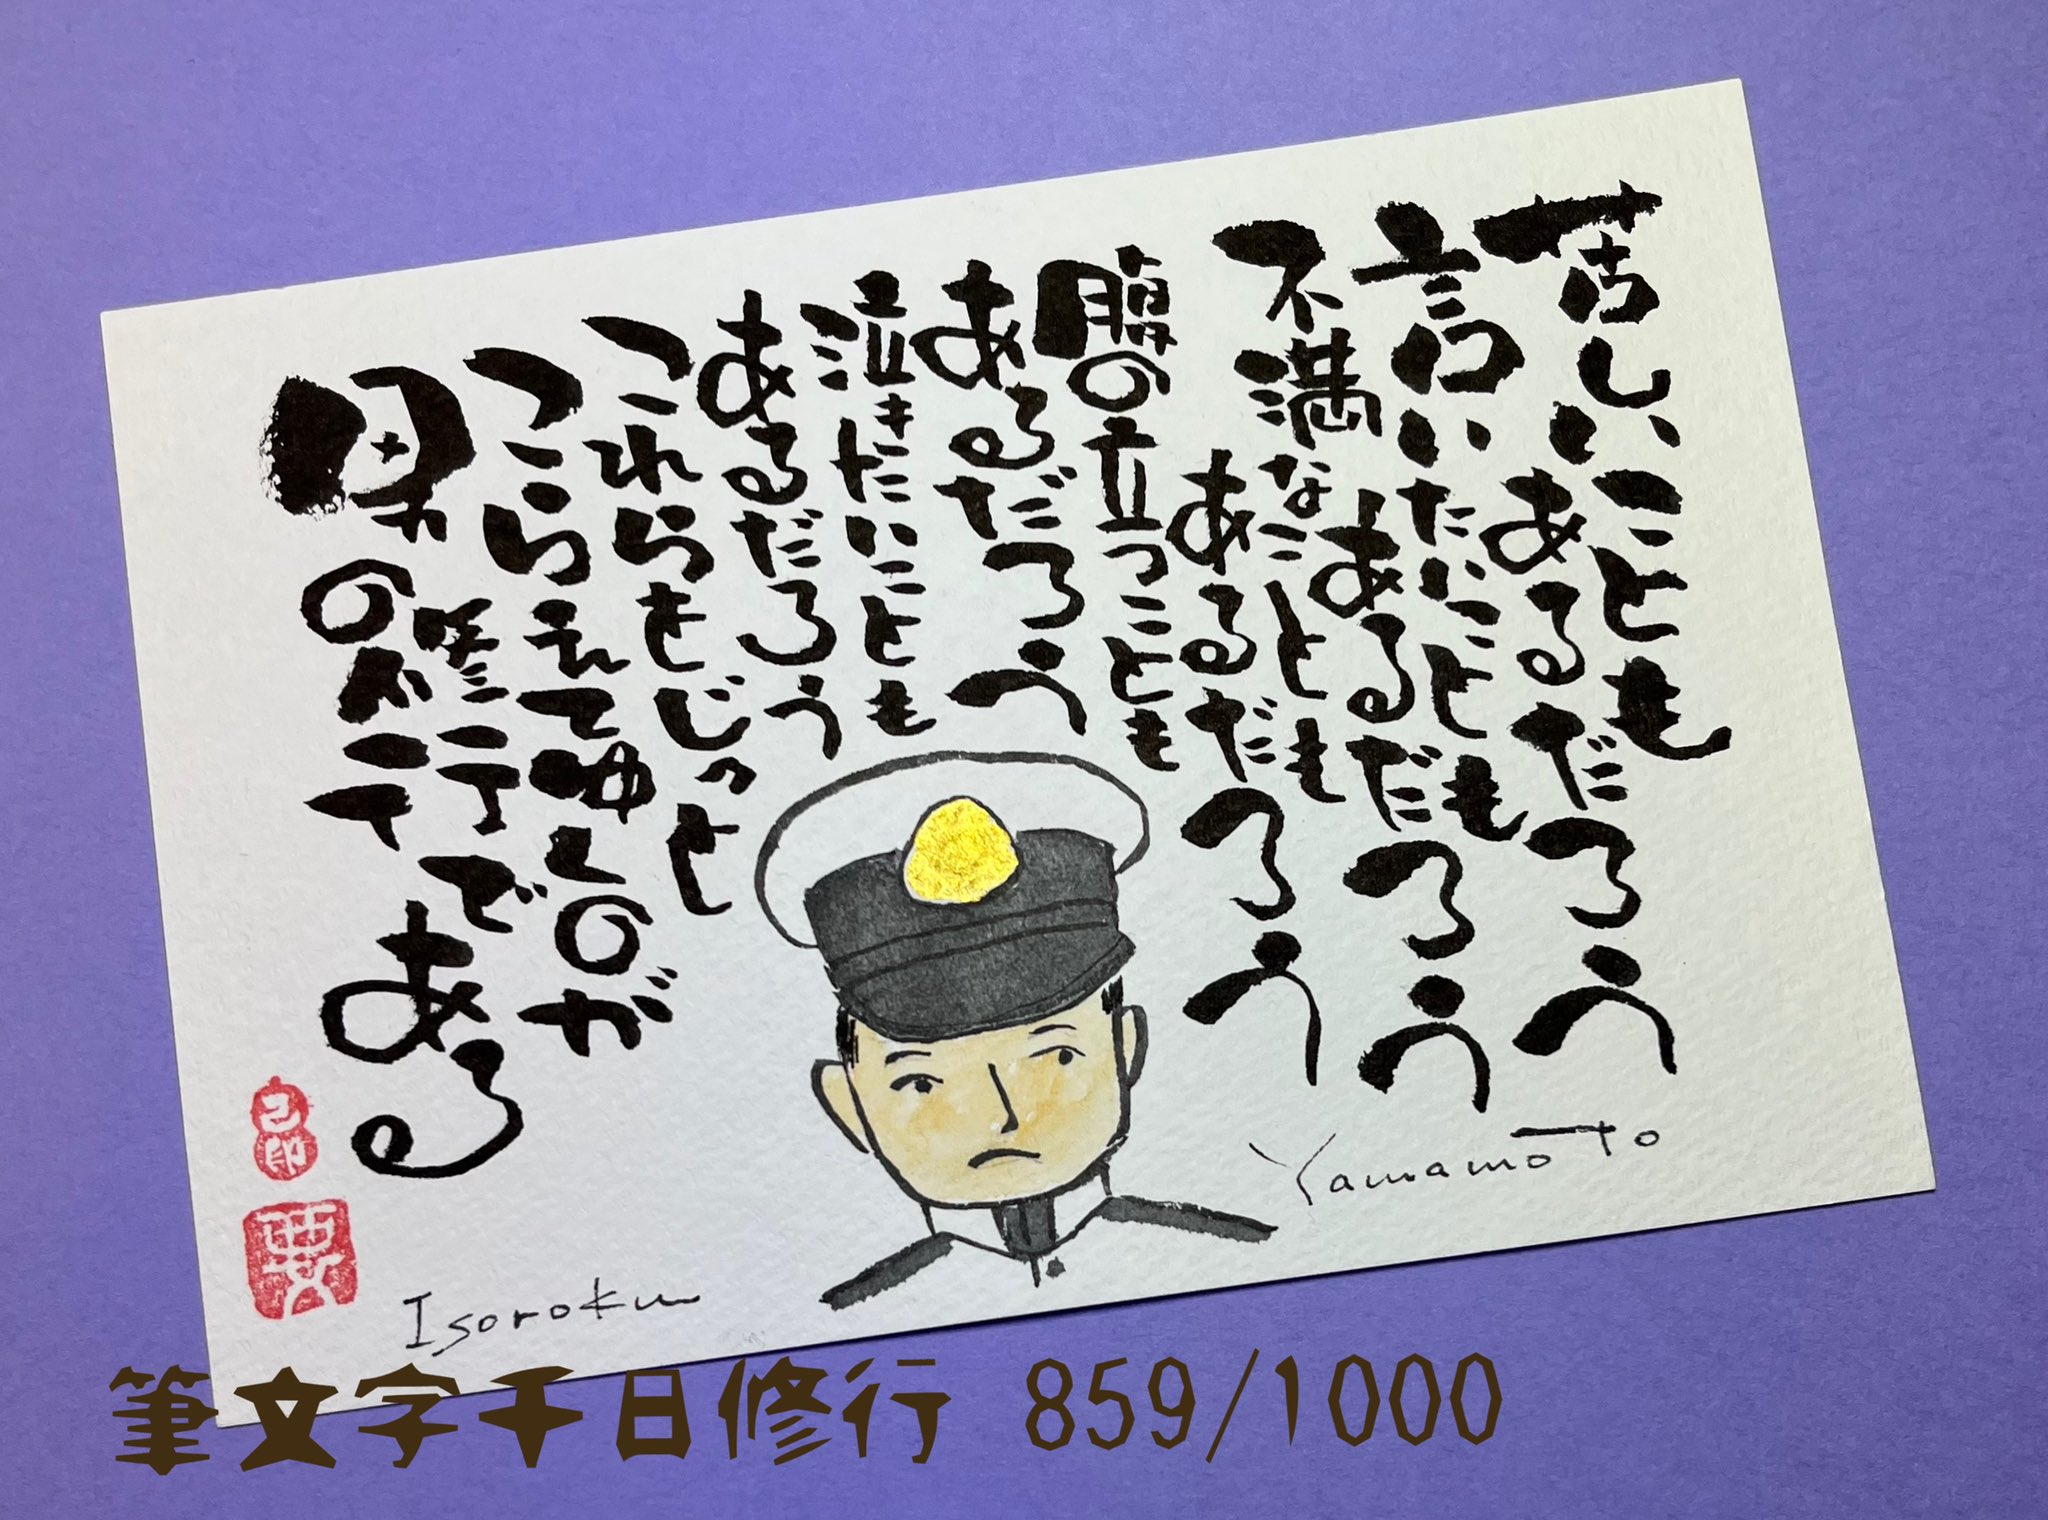 苦しいことも
あるだろう
言いたいことも
あるだろう
不満なことも
あるだろう
腹の立つことも
あるだろう
泣きたいことも
あるだろう
これらをじっと
こらえてゆくのが
男の修行である
Yamamoto
Isoroku
要
筆文字千日修行 859/1000